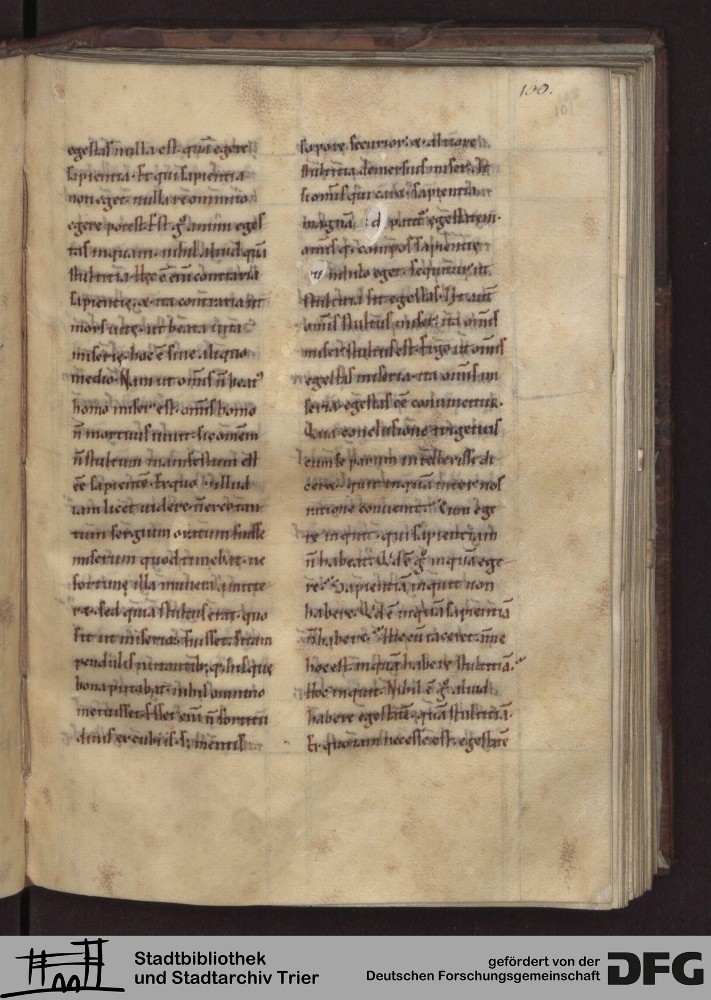 100.
101
egestas nulla est quā egere
sapientia. Et qui sapientia
non eget. nulla re omnino
egere potest. Est g° animi eges
tas inquam. nihil aliud quā
stultitia. Hec ē eni contraria
sapientię. & ita contraria ut
mors uitę. ut beata uita
miserię. hoc ē sine aliquo
medio. Nam ut omīs n̄ beat'
homo miser est. omīs homo
n̄ mortuus uiuit. sic omēm
n̄ stultum manifestum est
eē sapientē. Ex quo illud
iam licet uidere. n̄ eo tan
tum sergium oratum fuisse
miserum quod timebat. ne
fortunę illa munera amitte
ret. sed quia stultus erat. quo
fit ut miserior fuisset. si tam
pendulis nutantibȝ q; hisque
bona putabat. nihil omnino
metuisset. Esset eni n̄ fortitu
dinis excubiis. s; mentis
sapore securior. & altiore
stultitia demersus miser. At
si omīs qui caret sapientia
magnā patit' egestatem.
omīs q; compos sapientię
nihilo eget. sequitur ut
stultitia sit egestas. Ut aut
omīs stultus miser. ita omīs
miser stultus est. Ergo ut omīs
egestas miseria. ita omīs mi
seria egestas eē conuincitur.
Qua conclusione trigetius
cum se parum intellexisse di
ceret. quid inquā inter nos
ratione conuenit? Eum ege
re inquit. qui sapientiam
n̄ habeat. Qd ē g° inquā ege
re? Sapientiā inquit non
habere. Qd ē inquā sapientiā
n̄ habere? Hic cū taceret. n̄ne
hoc est inquā habere stultitiā?
Hoc inquit. Nihil ē g° aliud
habere egestatē. quā stultitiā.
Ex quo iam necesse est. egestatē
Stadtbibliothek
und Stadtarchiv Trier
gefördert von der
Deutschen Forschungsgemeinschaft
DFG